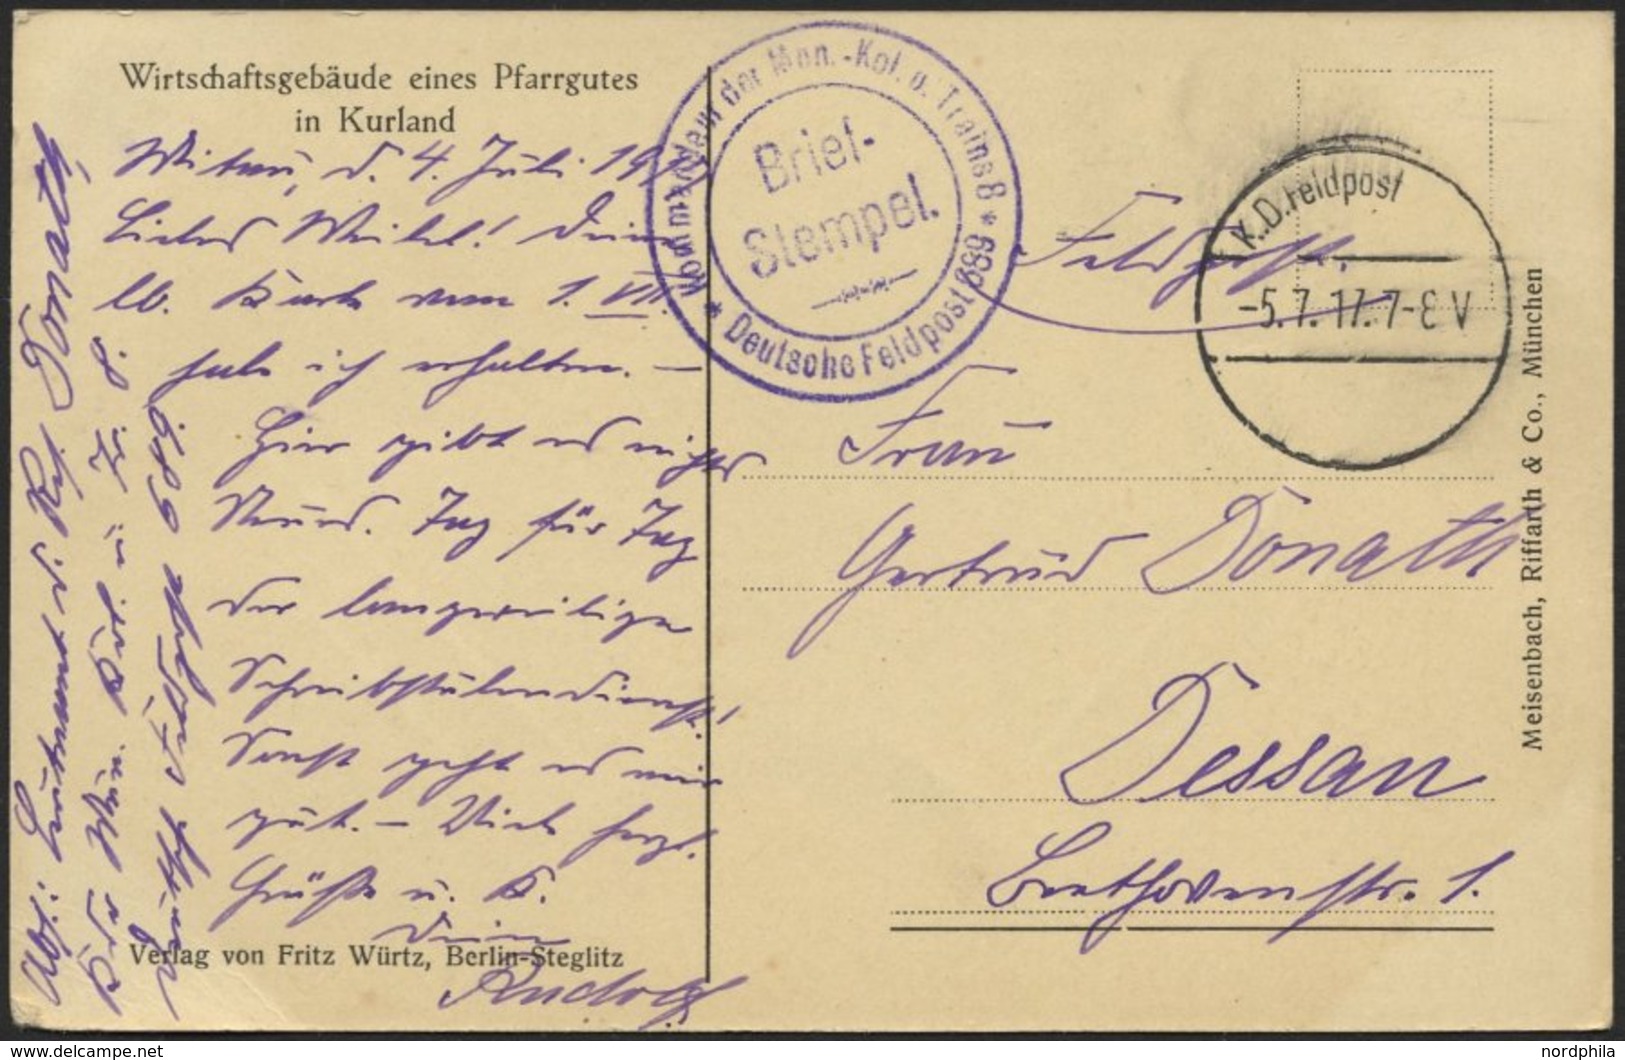 Wirtschaftsgebäude eines Pfarrgutes
in Kurland
Mitau, d. 4. Juli 1917
Liebes Weibel! Deine
lb. Karte vom 1. VII.
habe ich erhalten. –
Hier gibt es nichts
Neues. Tag für Tag
der langweilige
Schreibstubendienst!
Sonst geht es mir
gut. – Viele herzl.
Grüße u. K.
Dein
Rudolf
Verlag von Fritz Würtz, Berlin-Steglitz
Abs: Leutnant d. R. Donath
Deutsche Feldpost 689
Kommandeur der Mun.-Kol. u. Trains 8
Brief-
Stempel.
* Deutsche Feldpost 689 *
Feldpost.
K.D. Feldpost
-5.7.17.7-8 V
Frau
Gertrud Donath
Dessau
Beethovenstr. 1.
Meisenbach, Riffarth & Co., München